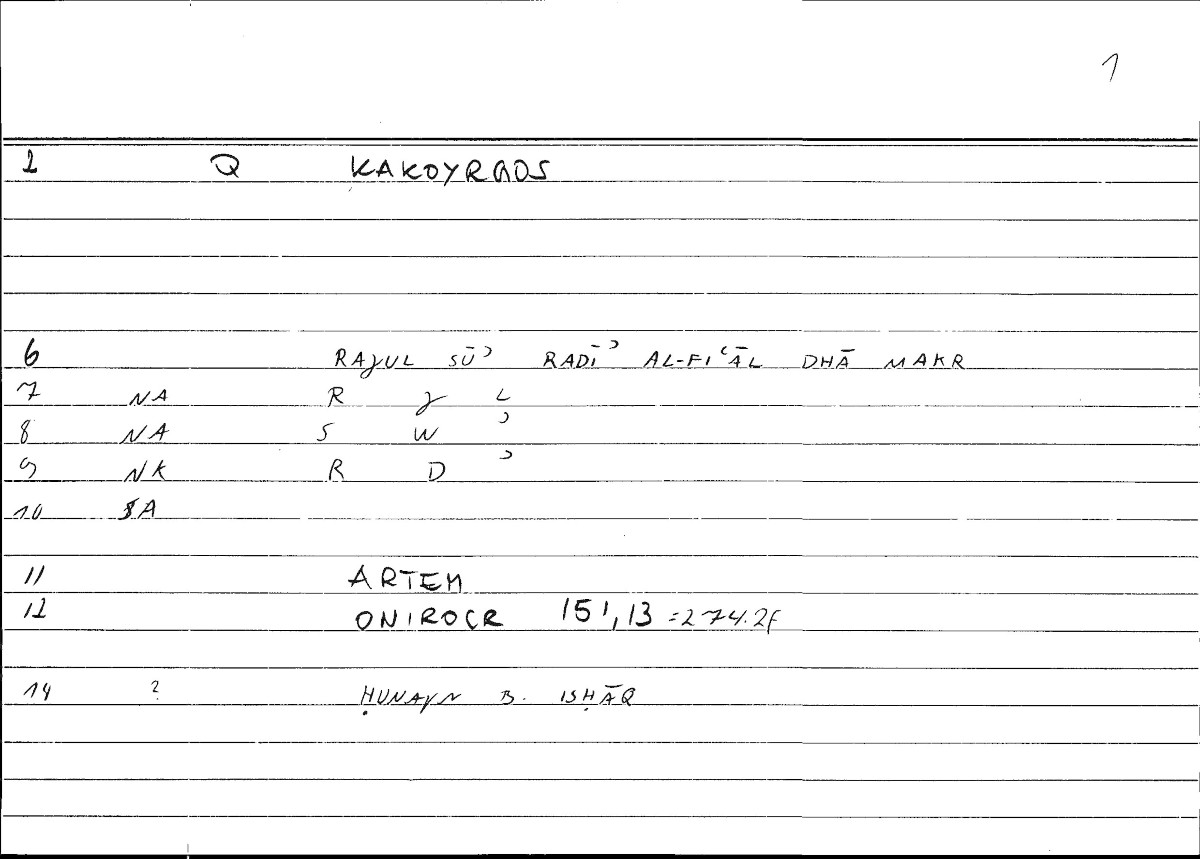 1
1 Q KAKOYRGOS
6 RAJUL SŪʾ RADĪʾ AL-FIʿĀL DHĀ MAKR
7 NA R J L
8 NA S W ʾ
9 NK R D ʾ
10 SA
11 ARTEM
12 ONIROCR 151,13 =274.2f
14 ? ḤUNAYN B. ISḤĀQ